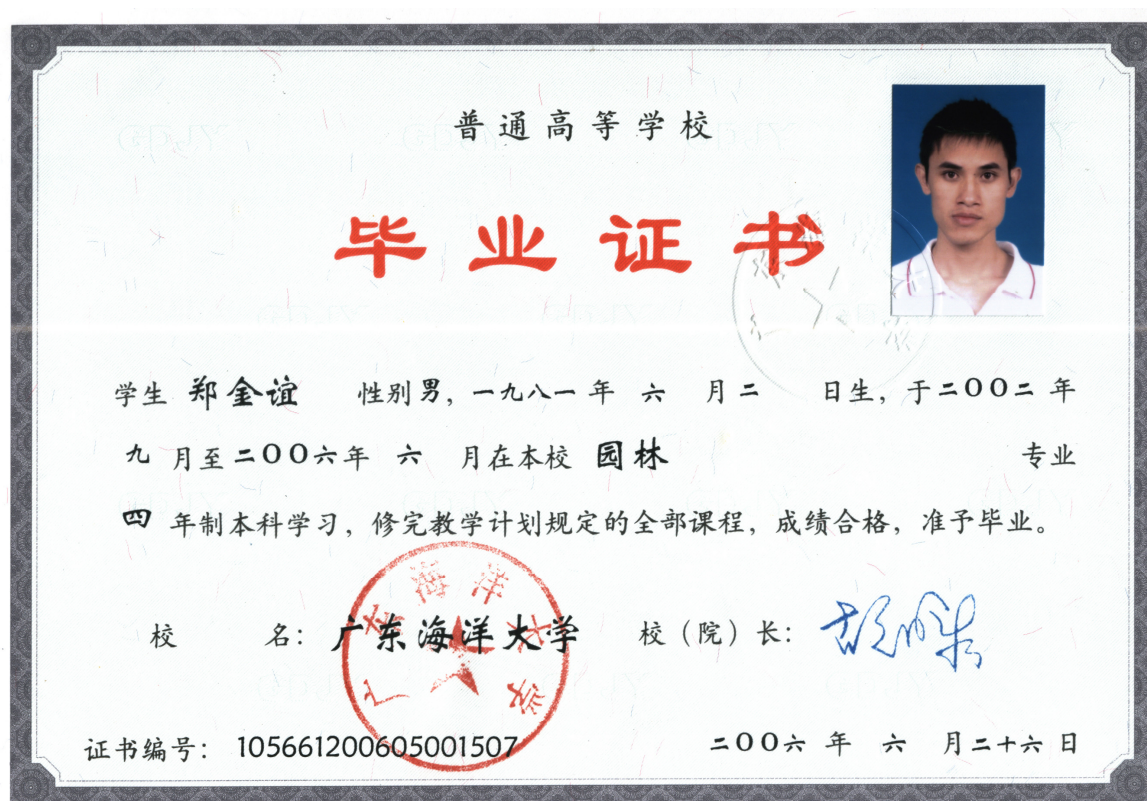 普通高等学校
毕业证书
学生 郑金谊 性别男，一九八一年 六 月二 日生，于二〇〇二年
九 月至二〇〇六年 六 月在本校 园林 专业
四 年制本科学习，修完教学计划规定的全部课程，成绩合格，准予毕业。
校 名：广东海洋大学 校（院）长：
广东海洋大学
证书编号：105661200605001507 二〇〇六 年 六 月二十六日